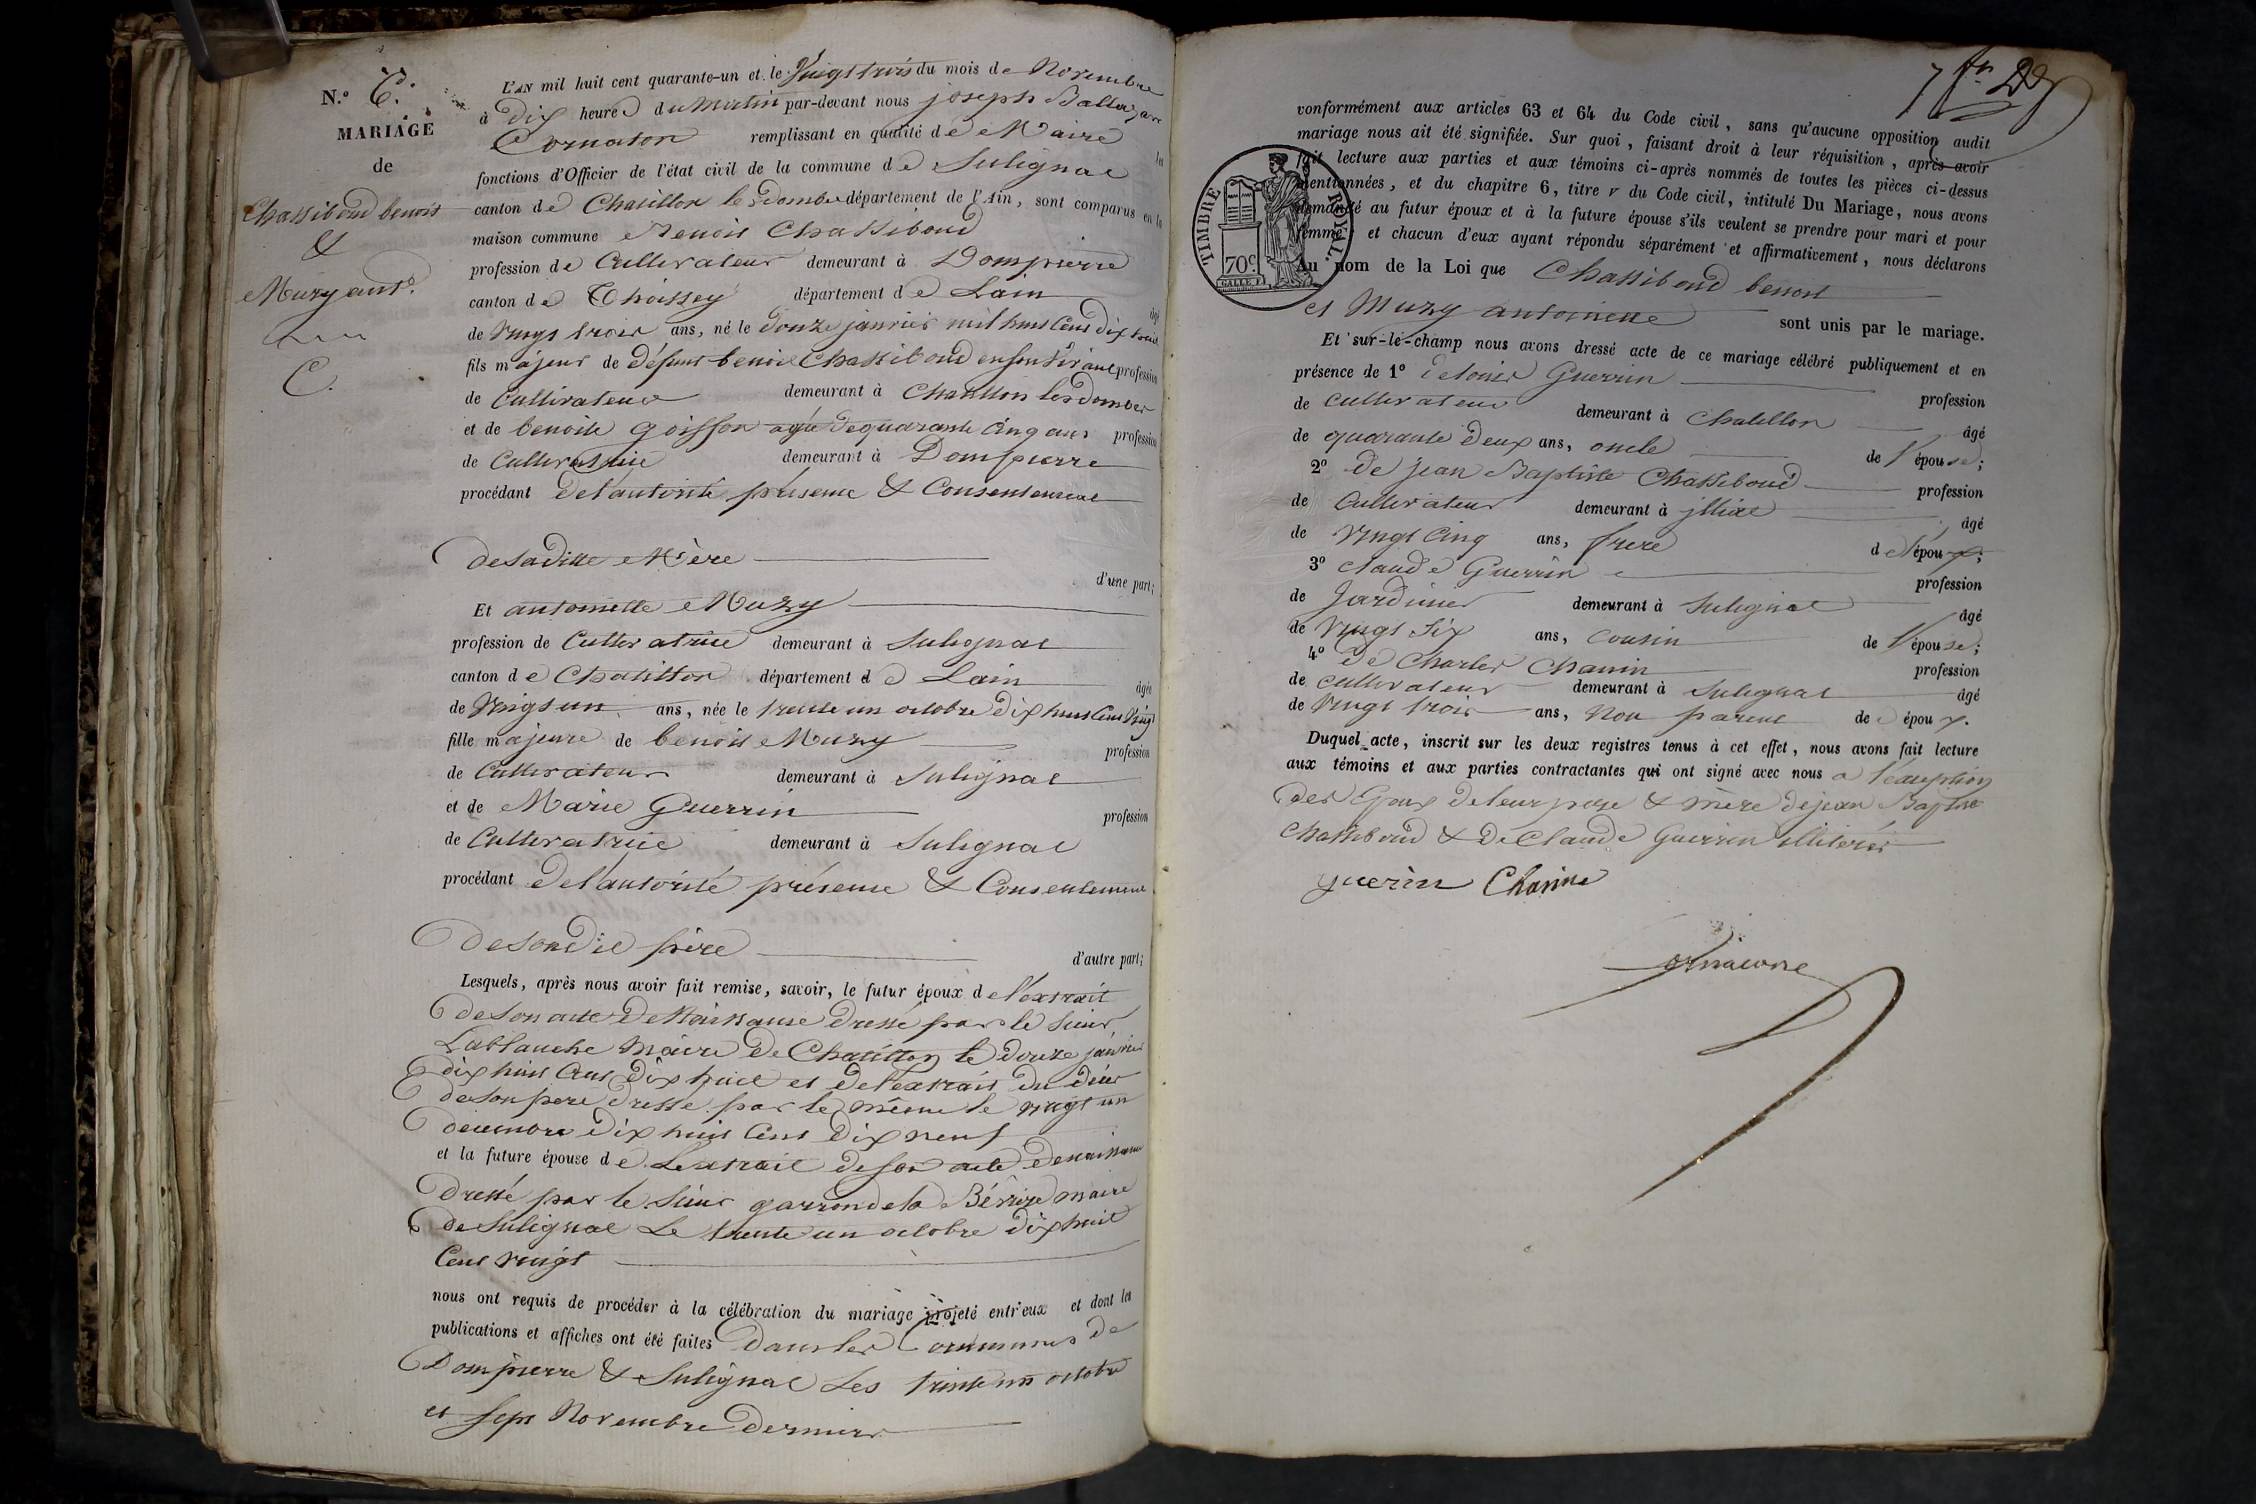 N.º 6.
MARIAGE
de
Chassiboud benoit
&
Muzy ant.e
C.
L'AN mil huit cent quarante-un et le Vingt trois du mois de Novembre
à dix heures du Matin par-devant nous joseph Baltazare
Cornaton remplissant en qualité de Maire les
fonctions d'Officier de l'état civil de la commune de Sulignat
canton de Chatillon les Dombes département de l'Ain, sont comparus en la
maison commune Benoit Chassiboud
profession de Cultivateur demeurant à Dompierre
canton de Thoissey département de Lain âgé
de Vingt trois ans, né le douze janvier mil huit Cent dix huit
fils majeur de défunt benoit Chassiboud en son vivant profession
de Cultivateur demeurant à Chatillon les Dombes
et de benoite goiffon agée de quarante Cinq ans profession
de Cultivatrice demeurant à Dompierre
procédant de l'autorité présence & Consentement
de sa ditte Mère
d'une part;
Et antoinette Muzy
profession de Cultivatrice demeurant à Sulignat
canton de Chatillon département de Lain âgée
de Vingt un ans, née le trente un octobre dix huit Cent Vingt
fille majeure de benoit Muzy profession
de Cultivateur demeurant à Sulignat
et de Marie Guerrin profession
de Cultivatrice demeurant à Sulignat
procédant de l'autorité présence & Consentement
de son dit père
d'autre part;
Lesquels, après nous avoir fait remise, savoir, le futur époux de l'extrait
de son acte de Naissance dressé par le Sieur
Lablanche Maire de Chatillon le douze janvier
dix huit Cent dix huit et de l'extrait du décès
de son pere dressé par le même le vingt un
decembre dix huit Cent dix neuf
et la future épouse de Lextrait de son acte de naissance
dressé par le Sieur garron de la Bévière maire
de Sulignat Le trente un octobre dix huit
Cent vingt
nous ont requis de procéder à la célébration du mariage projeté entr'eux et dont les
publications et affiches ont été faites dans les Communes de
Dompierre & Sulignat Les trente un octobre
et sept Novembre dernier
conformément aux articles 63 et 64 du Code civil, sans qu'aucune opposition audit
mariage nous ait été signifiée. Sur quoi, faisant droit à leur réquisition, après avoir
fait lecture aux parties et aux témoins ci-après nommés de toutes les pièces ci-dessus
mentionnées, et du chapitre 6, titre v du Code civil, intitulé Du Mariage, nous avons
demandé au futur époux et à la future épouse s'ils veulent se prendre pour mari et pour
femme, et chacun d'eux ayant répondu séparément et affirmativement, nous déclarons
Au nom de la Loi que Chassiboud benoit
et Muzy antoinette sont unis par le mariage.
TIMBRE ROYAL.
70c.
Et sur-le-champ nous avons dressé acte de ce mariage célébré publiquement et en
présence de 1º Guerrin profession
de cultivateur demeurant à Chatillon âgé
de quarante deux ans, oncle de l'épouse;
2º de jean Baptiste Chassiboud profession
de Cultivateur demeurant à jlliat âgé
de Vingt Cinq ans, frere de l'époux;
3º claude Guerrin profession
de Jardinier demeurant à Sulignat âgé
de Vingt Six ans, cousin de l'épouse;
4º de Charles Chanin profession
de cultivateur demeurant à Sulignat âgé
de Vingt trois ans, non parent de époux.
Duquel acte, inscrit sur les deux registres tenus à cet effet, nous avons fait lecture
aux témoins et aux parties contractantes qui ont signé avec nous a l'exception
des Epoux de leur pere & mère de jean Baptiste
Chassiboud & de Claude Guerrin illiterés
guerin